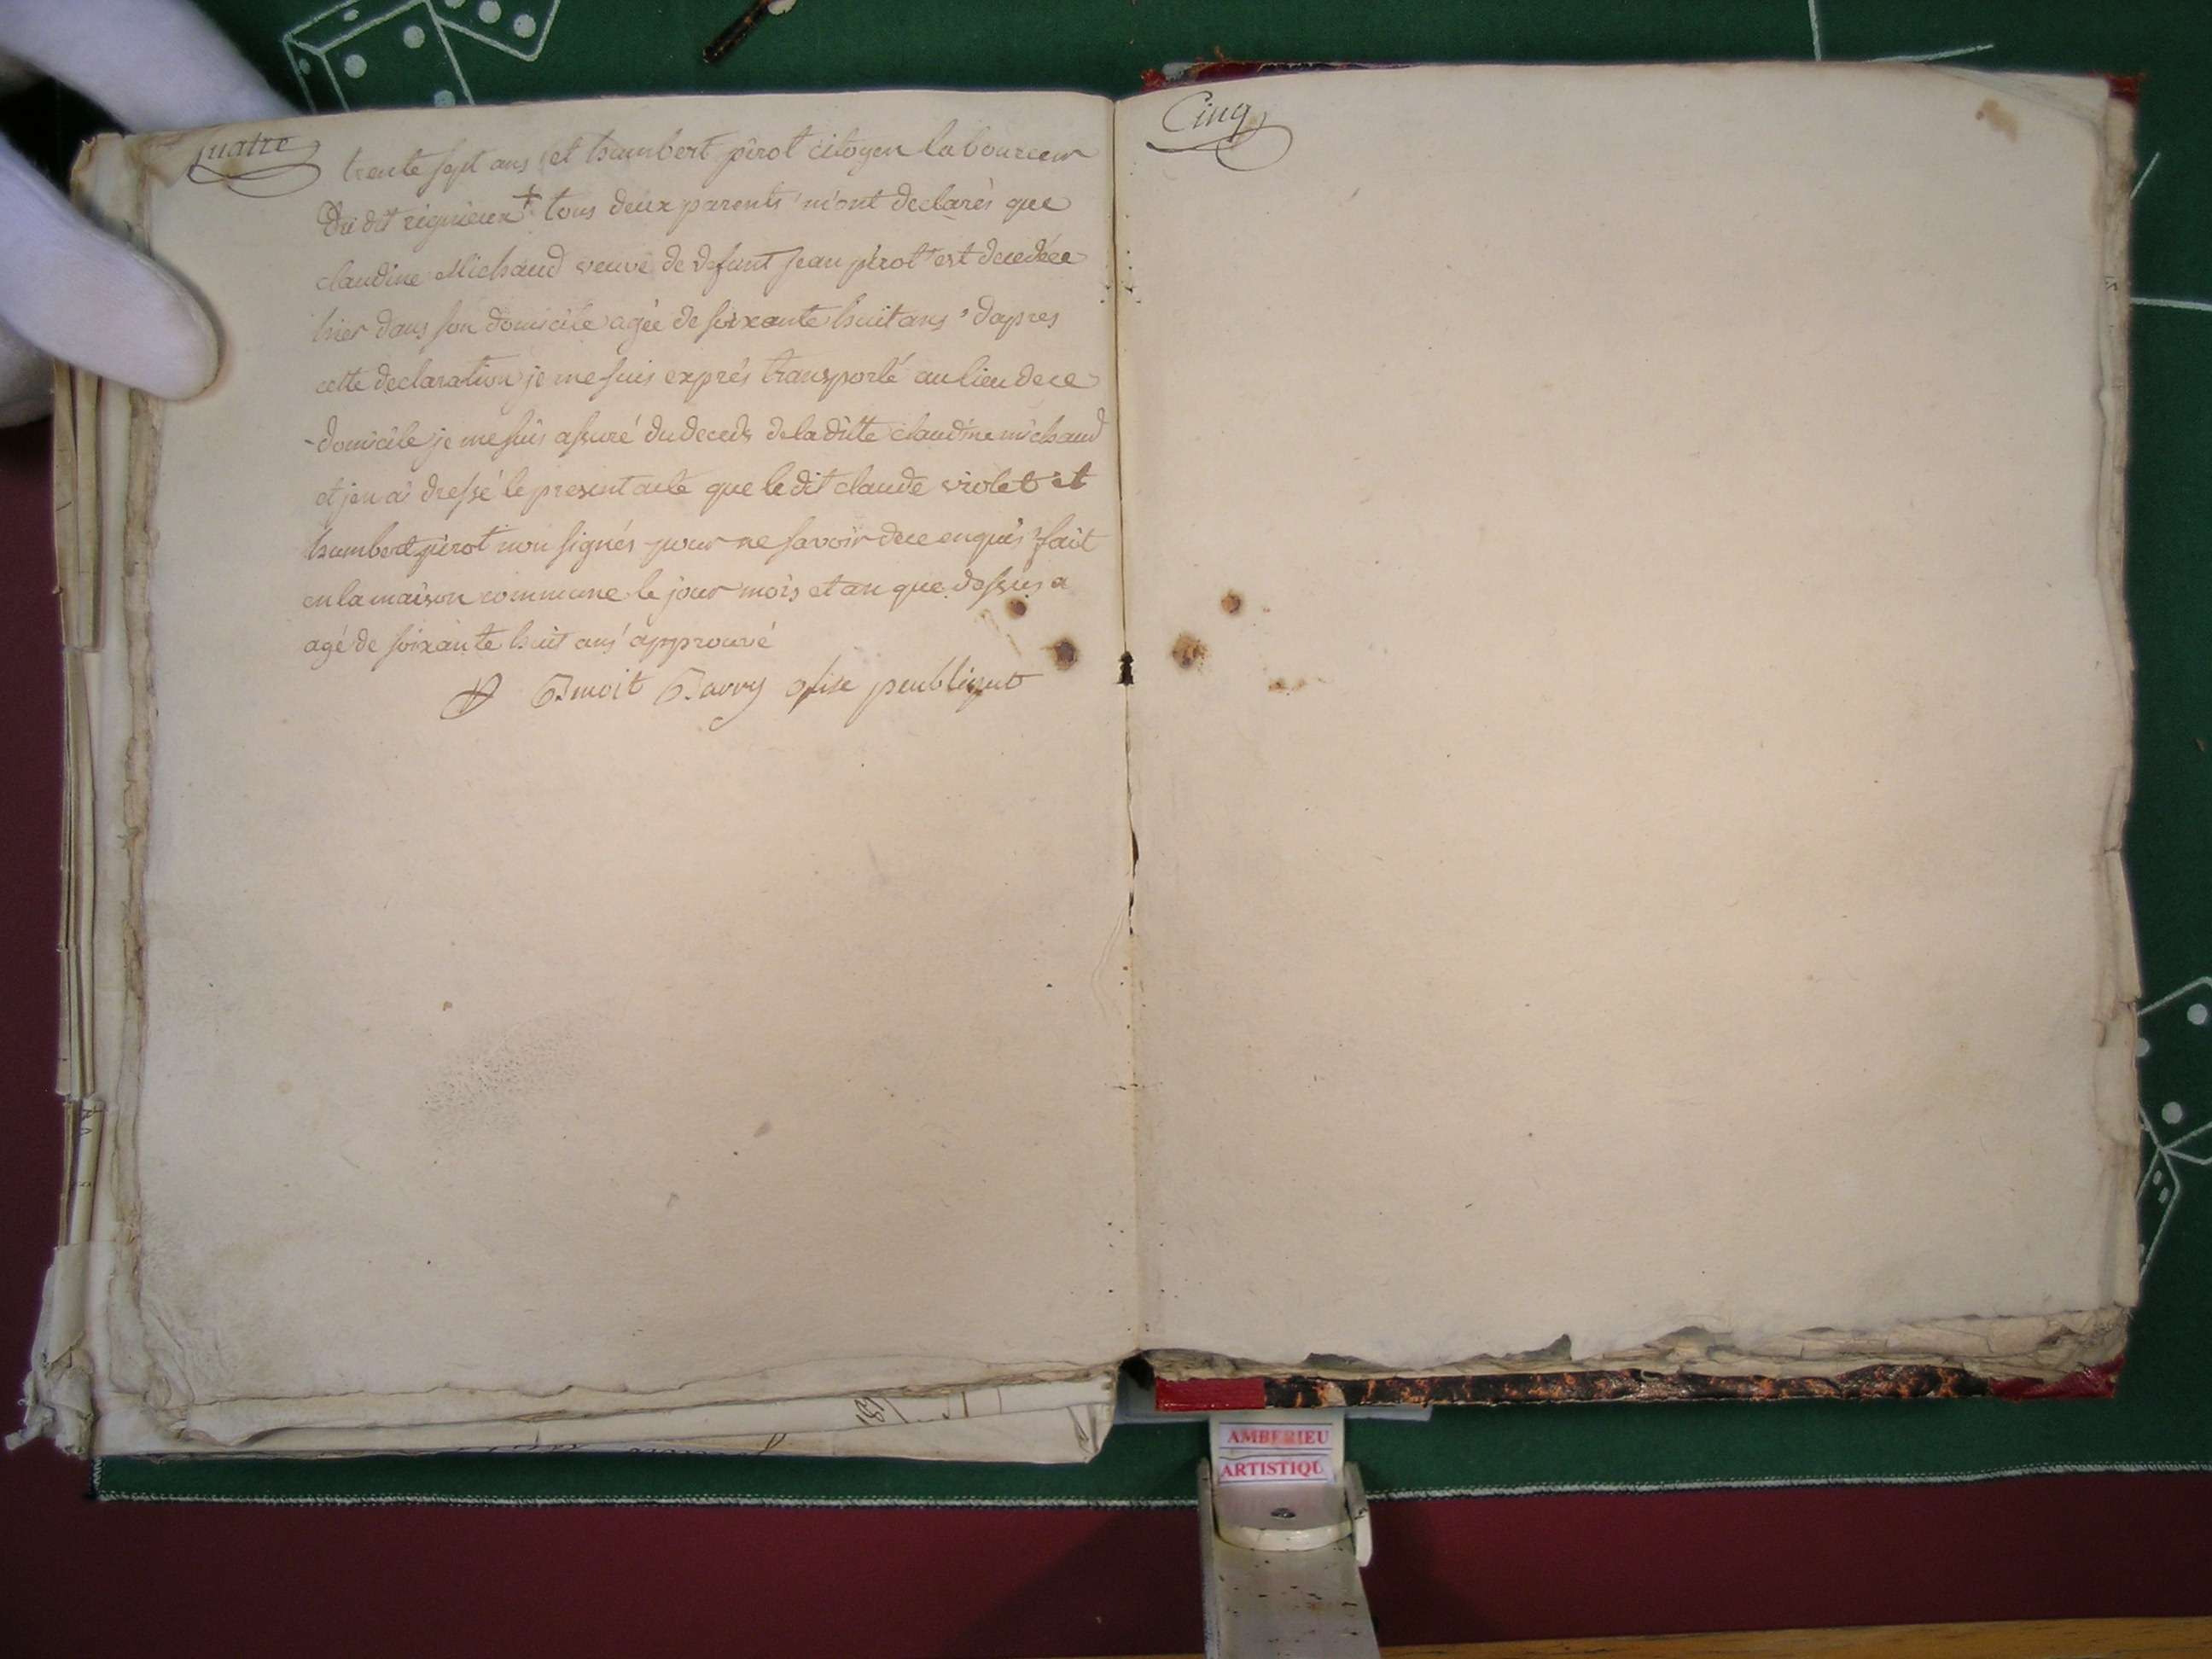 quatre
trente sept ans et humbert pirot citoyen laboureur
Du dit rignieux + tous deux parents m'ont declarés que
claudine Michaud veuve de defunt jean pirot est decedéee
hier dans son domicile agée de soixante huit ans dapres
cette declaration je me suis exprés transporté au lieu de ce
domicile je me suis assuré du deceds de la ditte claudine michaud
et jen ai dressé le present acte que le dit claude violet et
humbert pirot non signés pour ne savoir de ce enquis fait
en la maison commune le jour mois et an que dessus a
agé de soixante huit ans approuvé
Benoit Barry ofise peublique
Cinq
AMBERIEU
ARTISTIQU